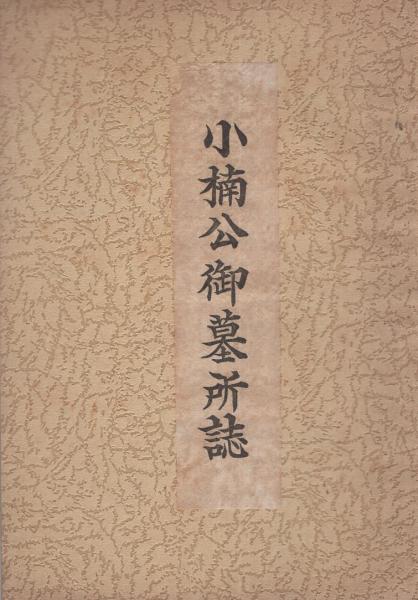 小楠公御墓所誌